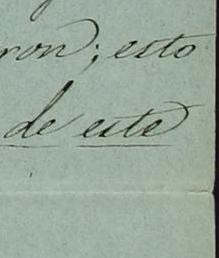 ron; esto
de este